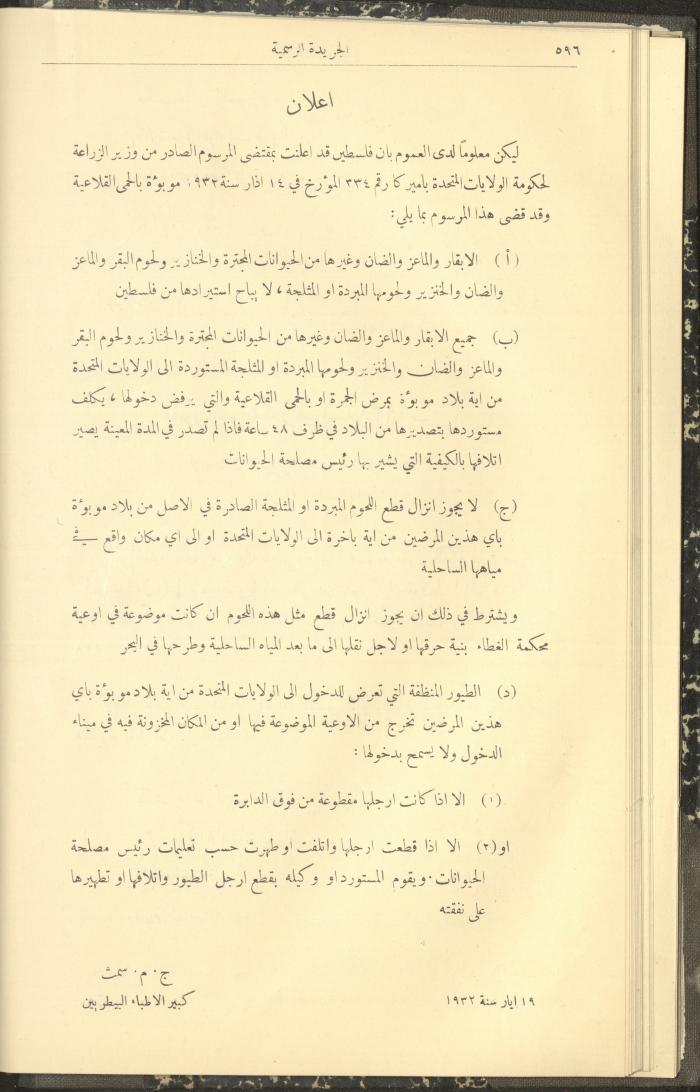 ٥٩٦
الجريدة الرسمية
اعلان
ليكن معلومًا لدى العموم بان فلسطين قد اعلنت بمقتضى المرسوم الصادر من وزير الزراعة
لحكومة الولايات المتحدة باميركا رقم ٣٣٤ المؤرخ في ١٤ اذار سنة ١٩٣٢، موبوءة بالحمى القلاعية
وقد قضى هذا المرسوم بما يلي:
(أ) الابقار والماعز والضان وغيرها من الحيوانات المجترة والخنازير ولحوم البقر والماعز
والضان والخنزير ولحومها المبردة او المثلجة، لا يباح استيرادها من فلسطين
(ب) جميع الابقار والماعز والضان وغيرها من الحيوانات المجترة والخنازير ولحوم البقر
والماعز والضان والخنزير ولحومها المبردة او المثلجة المستوردة الى الولايات المتحدة
من اية بلاد موبوءة بمرض الجمرة او بالحمى القلاعية والتي يرفض دخولها، يكلف
مستوردها بتصديرها من البلاد في ظرف ٤٨ ساعة فاذا لم تصدر في المدة المعينة يصير
اتلافها بالكيفية التي يشير بها رئيس مصلحة الحيوانات
(ج) لا يجوز انزال قطع اللحوم المبردة او المثلجة الصادرة في الاصل من بلاد موبوءة
باي هذين المرضين من اية باخرة الى الولايات المتحدة او الى اي مكان واقع في
مياهها الساحلية
ويشترط في ذلك ان يجوز انزال قطع مثل هذه اللحوم ان كانت موضوعة في اوعية
محكمة الغطاء بنية حرقها او لاجل نقلها الى ما بعد المياه الساحلية وطرحها في البحر
(د) الطيور المنظفة التي تعرض للدخول الى الولايات المتحدة من اية بلاد موبوءة باي
هذين المرضين تخرج من الاوعية الموضوعة فيها او من المكان المخزونة فيه في ميناء
الدخول ولا يسمح بدخولها:
(١) الا اذا كانت ارجلها مقطوعة من فوق الدابرة
او (٢) الا اذا قطعت ارجلها واتلفت او طهرت حسب تعليمات رئيس مصلحة
الحيوانات. ويقوم المستورد او وكيله بقطع ارجل الطيور واتلافها او تطهيرها
على نفقته
ج. م. سمث
١٩ ايار سنة ١٩٣٢
كبير الاطباء البيطريين